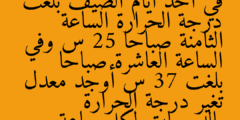 في احد ايام الصيف بلغت
درجة الحرارة الساعة
الثامنة صباحا 25 س وفي
الساعة العاشرة صباحا
بلغت 37 س اوجد معدل
تغير درجة الحرارة